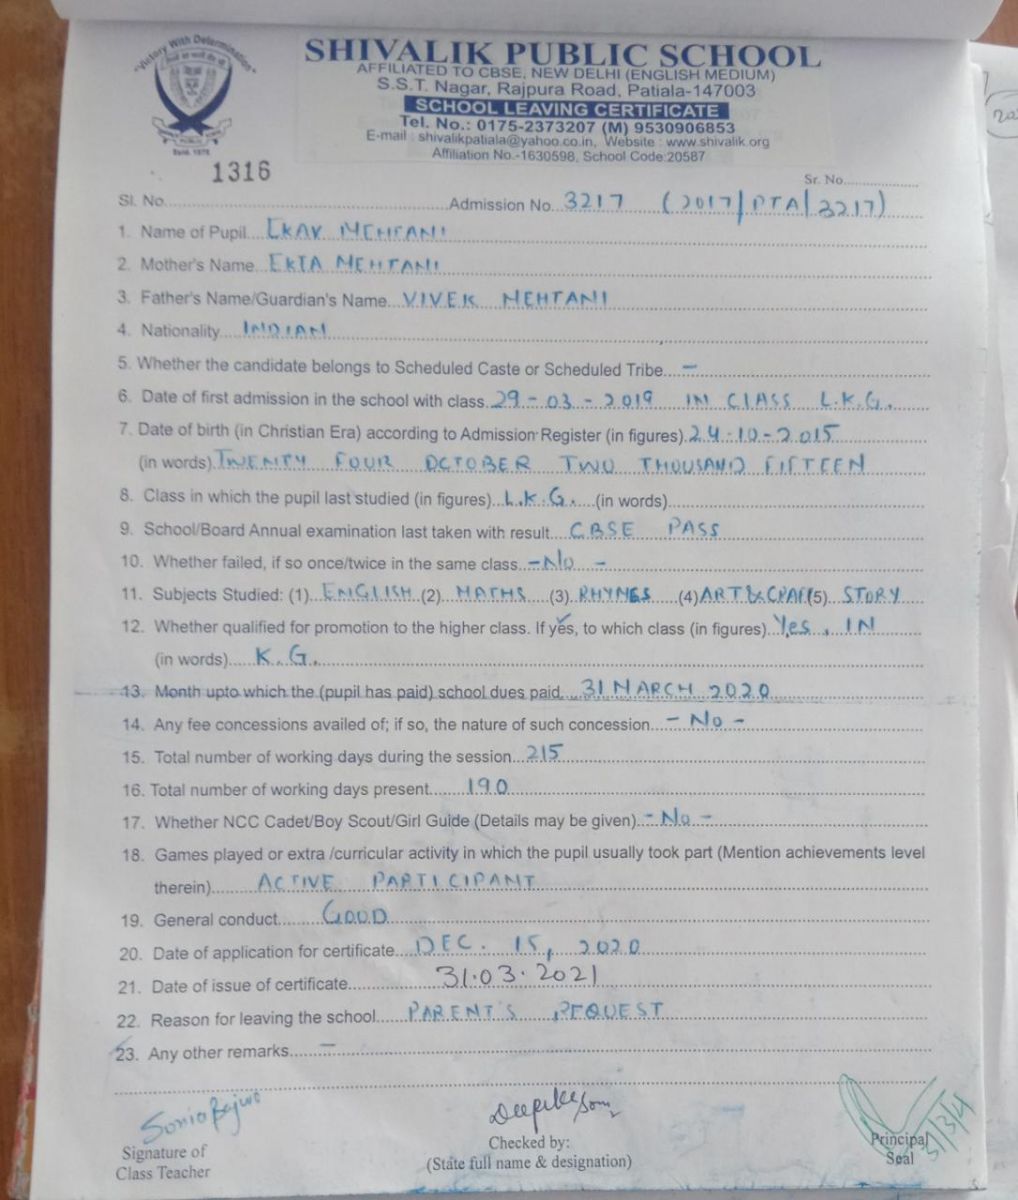 "Victory With Determination"
Estd. 1975
SHIVALIK PUBLIC SCHOOL
AFFILIATED TO CBSE, NEW DELHI (ENGLISH MEDIUM)
S.S.T. Nagar, Rajpura Road, Patiala-147003
SCHOOL LEAVING CERTIFICATE
Tel. No.: 0175-2373207 (M) 9530906853
E-mail : shivalikpatiala@yahoo.co.in, Website : www.shivalik.org
Affiliation No.-1630598, School Code:20587
1316
Sr. No.
Sl. No. Admission No. 3217 (2017/PTA/3217)
1. Name of Pupil EKAV MEHTANI
2. Mother's Name EKTA MEHTANI
3. Father's Name/Guardian's Name VIVEK MEHTANI
4. Nationality INDIAN
5. Whether the candidate belongs to Scheduled Caste or Scheduled Tribe -
6. Date of first admission in the school with class 29-03-2019 IN CLASS L.K.G.
7. Date of birth (in Christian Era) according to Admission Register (in figures) 24-10-2015
(in words) TWENTY FOUR OCTOBER TWO THOUSAND FIFTEEN
8. Class in which the pupil last studied (in figures) L.K.G. (in words)
9. School/Board Annual examination last taken with result CBSE PASS
10. Whether failed, if so once/twice in the same class -No-
11. Subjects Studied: (1) ENGLISH (2) MATHS (3) RHYMES (4) ART & CRAFT (5) STORY
12. Whether qualified for promotion to the higher class. If yes, to which class (in figures) Yes, IN
(in words) K.G.
13. Month upto which the (pupil has paid) school dues paid 31 MARCH 2020
14. Any fee concessions availed of; if so, the nature of such concession -No-
15. Total number of working days during the session 215
16. Total number of working days present 190
17. Whether NCC Cadet/Boy Scout/Girl Guide (Details may be given) -No-
18. Games played or extra /curricular activity in which the pupil usually took part (Mention achievements level
therein) ACTIVE PARTICIPANT
19. General conduct GOOD
20. Date of application for certificate DEC. 15, 2020
21. Date of issue of certificate 31.03.2021
22. Reason for leaving the school PARENT'S REQUEST
23. Any other remarks -
Sonia Bajwa
Signature of
Class Teacher
Checked by:
(State full name & designation)
Principal
Seal